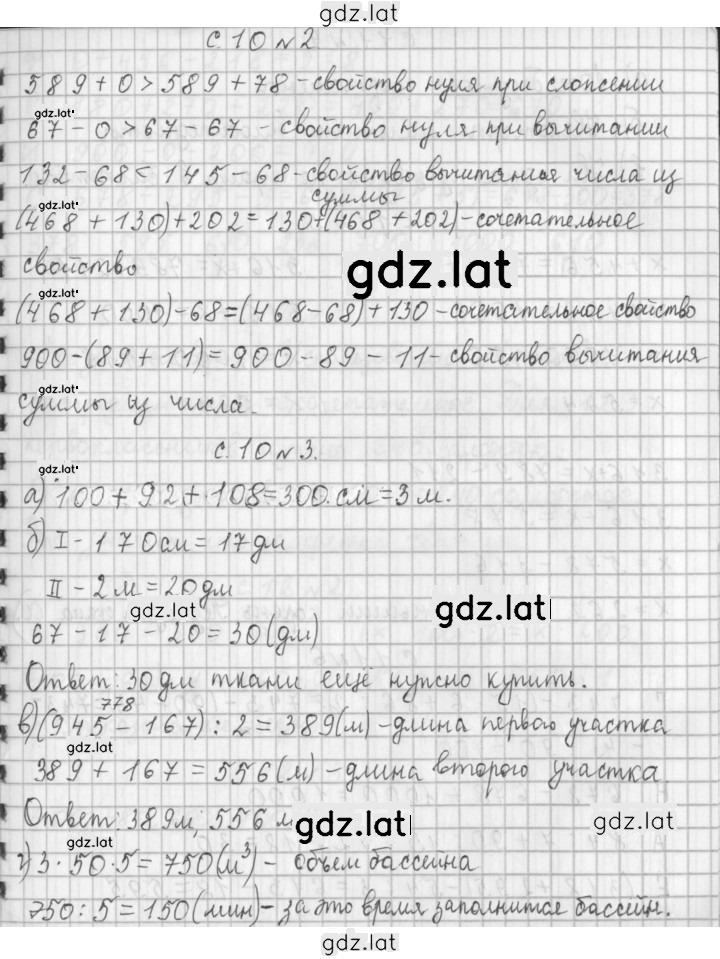 gdz.lat
с. 10 № 2
589+0>589+78-свойство нуля при сложении
gdz.lat
67-0>67-67 - свойство нуля при вычитании
132-68<145-68-свойство вычитания числа из
суммы
gdz.lat
(468+130)+202=130+(468+202)-сочетательное
свойство
gdz.lat
gdz.lat
(468+130)-68=(468-68)+130-сочетательное свойство
900-(89+11)=900-89-11-свойство вычитания
gdz.lat
суммы из числа.
с. 10 № 3.
gdz.lat
а) 100+92+108=300 см=3 м.
б) I-170 см=17 дм
II-2 м=20 дм
gdz.lat
gdz.lat
67-17-20=30(дм)
Ответ: 30 дм ткани ещё нужно купить.
778
в)(945-167):2=389(м)-длина первого участка
gdz.lat
389+167=556(м)-длина второго участка
Ответ: 389 м; 556 м
gdz.lat
gdz.lat
gdz.lat
г) 3·50·5=750(м³)- объем бассейна
750:5=150(мин)-за это время заполнится бассейн.
gdz.lat